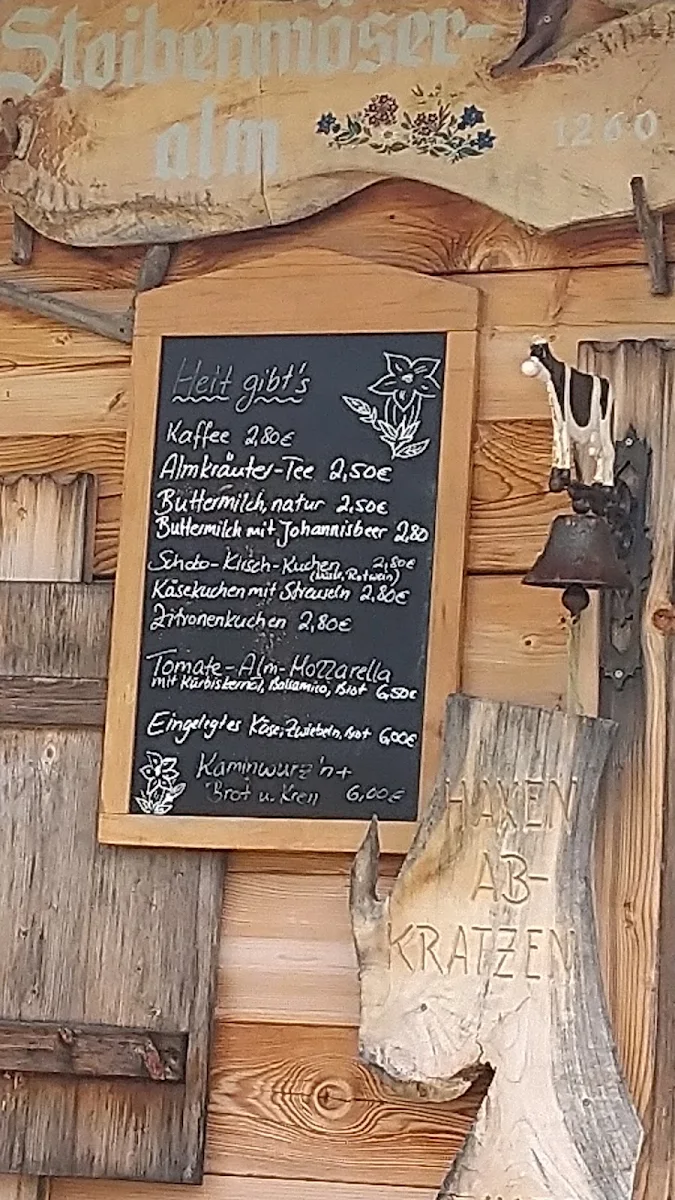 Stoibenmöser-
alm 1260
Heit gibt's
Kaffee 2,80€
Almkräuter-Tee 2,50€
Buttermilch, natur 2,50€
Buttermilch mit Johannisbeer 2,80
Schoko-Kirsch-Kuchen 2,80€
Rotwein)
Käsekuchen mit Streuseln 2,80€
Zitronenkuchen 2,80€
Tomate-Alm-Mozzarella
mit Kürbiskernöl, Balsamico, Brot 6,50€
Eingelegtes Käse, Zwiebeln, Brot 6,00€
Kaminwurz'n +
Brot u. Kren 6,00€
HAXEN
AB-
KRATZEN